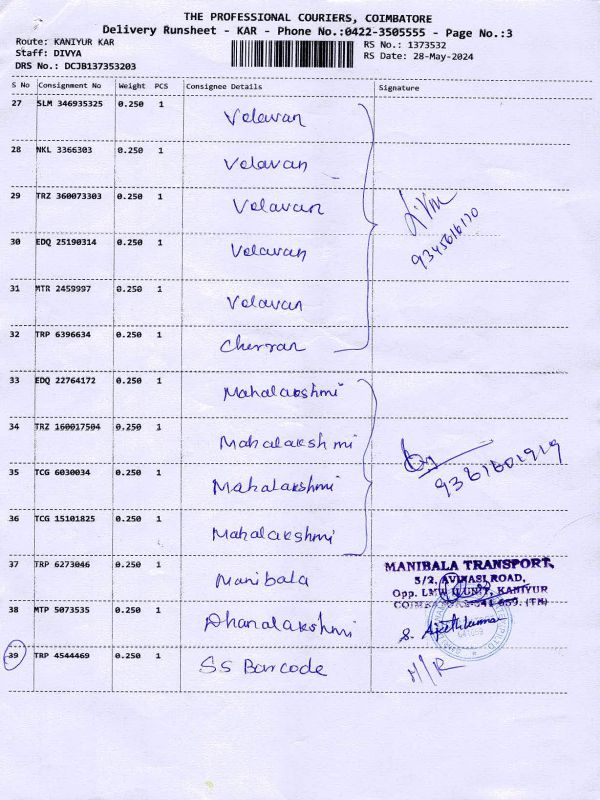 THE PROFESSIONAL COURIERS, COIMBATORE
Delivery Runsheet - KAR - Phone No.:0422-3505555 - Page No.:3
Route: KANIYUR KAR
RS No.: 1373532
Staff: DIVYA
RS Date: 28-May-2024
DRS No.: DCJB137353203
S No Consignment No Weight PCS Consignee Details Signature
27 SLM 346935325 0.250 1 Velavan
28 NKL 3366303 0.250 1 Velavan
29 TRZ 360073303 0.250 1 Velavan
9345616170
30 EDQ 25190314 0.250 1 Velavan
31 MTR 2459997 0.250 1 Velavan
32 TRP 6396634 0.250 1 Cherran
33 EDQ 22764172 0.250 1 Mahalakshmi
34 TRZ 160017504 0.250 1 Mahalakshmi
35 TCG 6030034 0.250 1 Mahalakshmi
9361601919
36 TCG 15101825 0.250 1 Mahalakshmi
37 TRP 6273046 0.250 1 Manibala
MANIBALA TRANSPORT,
5/2, AVINASI ROAD,
Opp. LMW II UNIT, KANIYUR
COIMBATORE-641 659. (TN)
38 MTP 5073535 0.250 1 Dhanalakshmi
S. Ajeethkumar
641659
39 TRP 4544469 0.250 1 SS Barcode
N/R